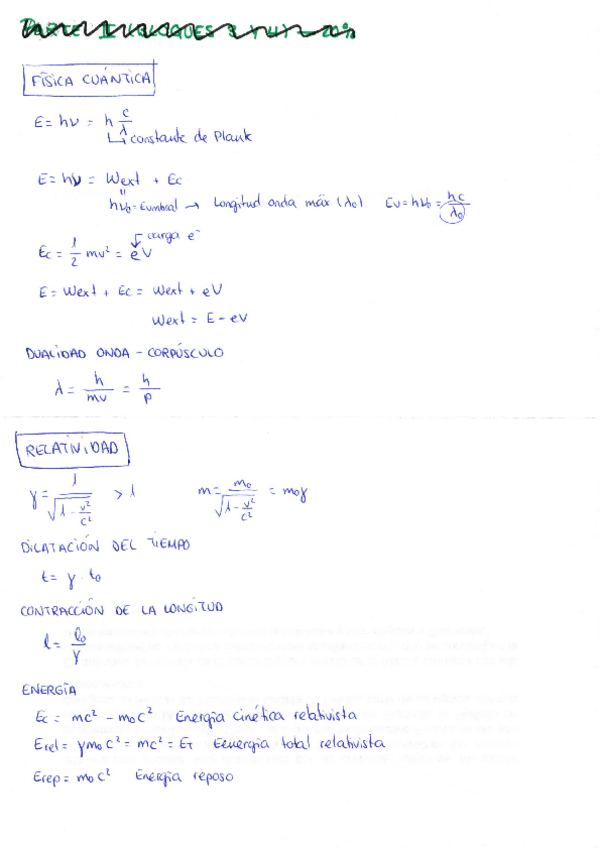 FÍSICA CUÁNTICA
E = hν = h c/λ
↳ constante de Plank
E = hν = Wext + Ec
hν₀ = Eumbral → Longitud onda máx (λ₀) Eu = hν₀ = hc/λ₀
carga e⁻
Ec = 1/2 mv² = eV
E = Wext + Ec = Wext + eV
Wext = E - eV
DUALIDAD ONDA - CORPÚSCULO
λ = h/mv = h/p
RELATIVIDAD
γ = 1/√(1 - v²/c²) > 1 m = m₀/√(1 - v²/c²) = m₀γ
DILATACIÓN DEL TIEMPO
t = γ · t₀
CONTRACCIÓN DE LA LONGITUD
l = l₀/γ
ENERGÍA
Ec = mc² - m₀c² Energía cinética relativista
Erel = γm₀c² = mc² = ET Eenergía total relativista
Erep = m₀c² Energía reposo